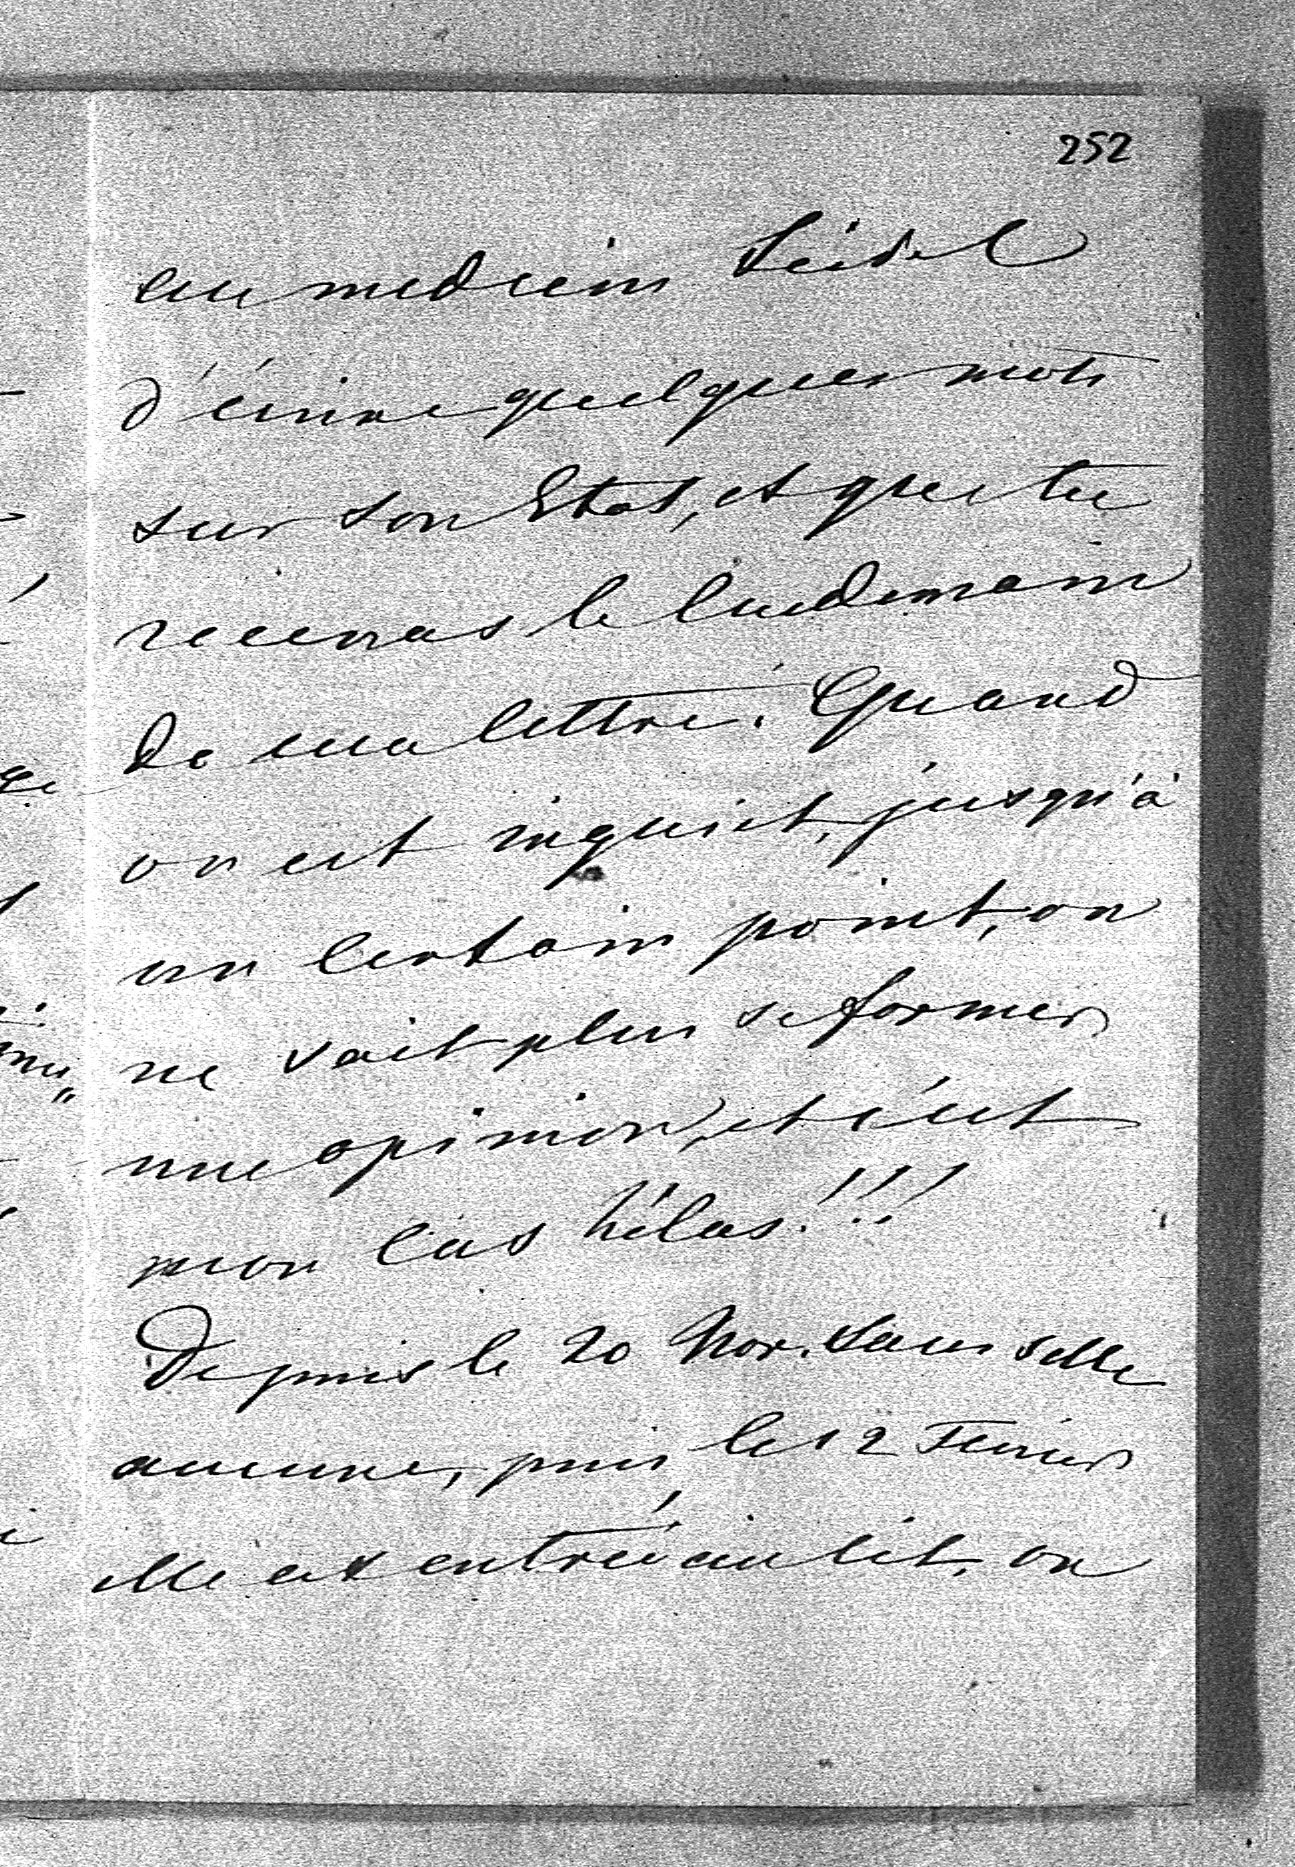 252
au medecin Seidel
d'écrire quelques mots
sur son Etat, et que tu
recevras le lendemain
de ma lettre. Quand
on est inquiet, jusqu'à
un certain point, on
ne sait plus se former
une opinion, et c'est
mon cas hélas!!!
Depuis le 20 Nov. sans selle
aucune, puis le 12 Fevrier
elle est entrée au lit, on